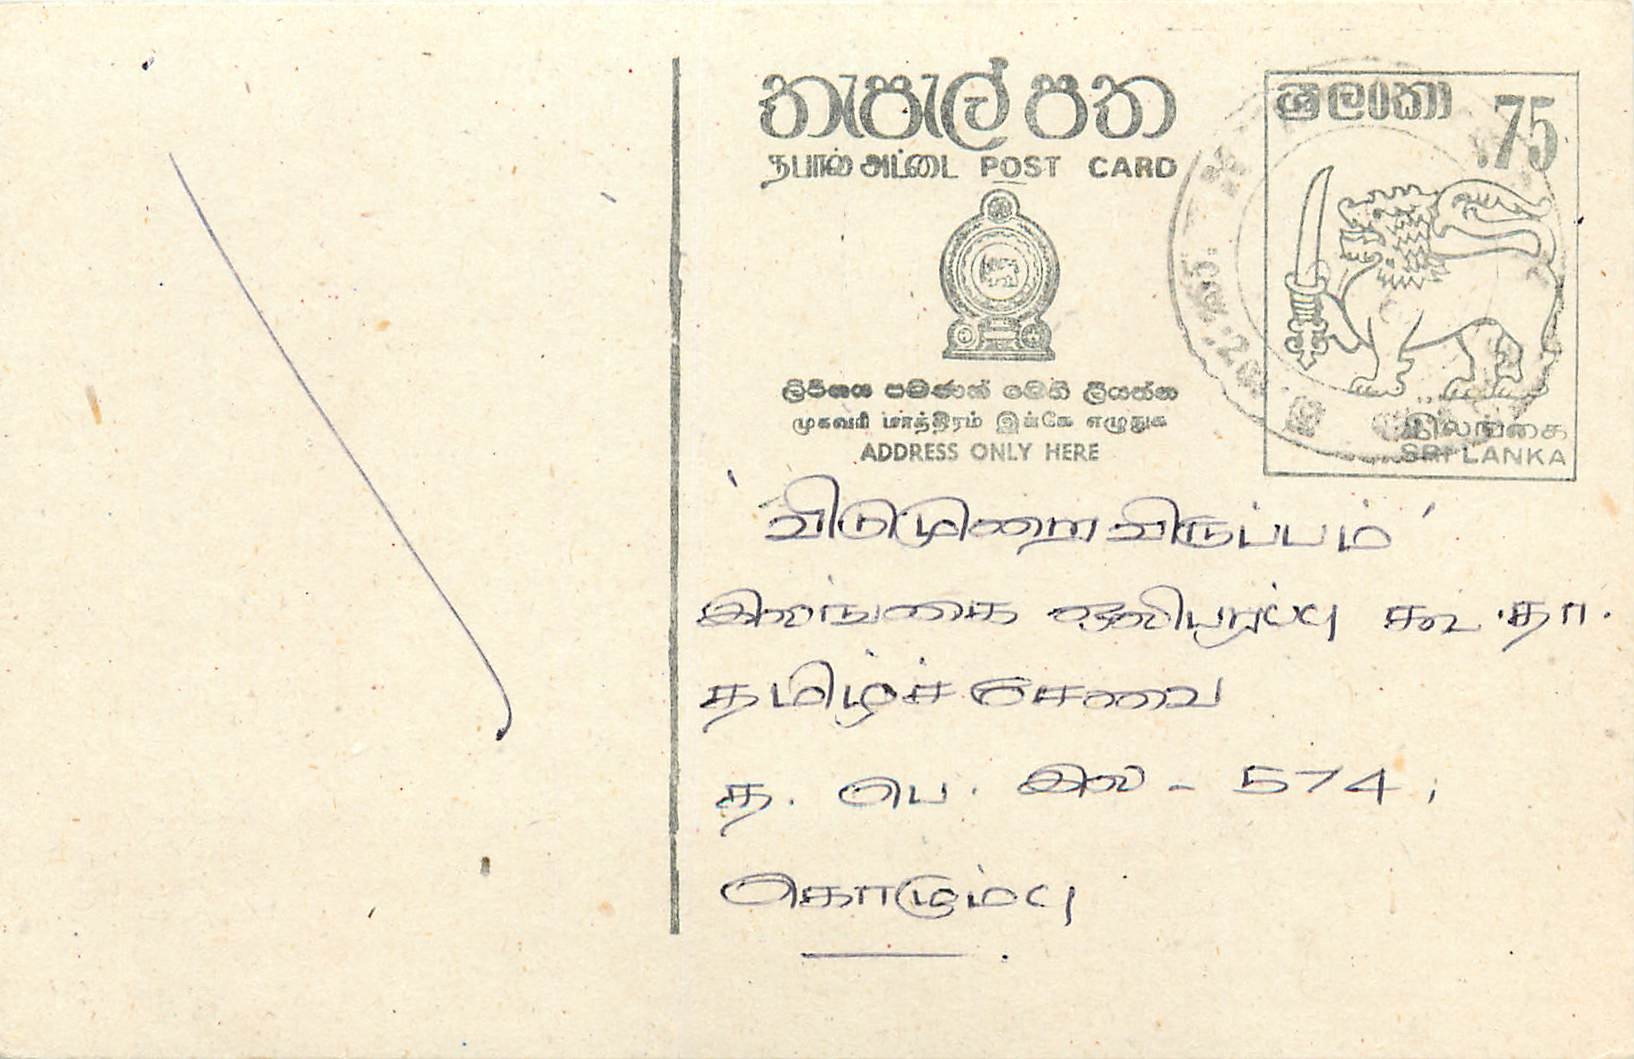 තැපැල් පත
தபால் அட்டை POST CARD
ශ්‍රී ලංකා
.75
ලිපිනය පමණක් මෙහි ලියන්න
முகவரி மாத்திரம் இங்கே எழுதுக
ADDRESS ONLY HERE
இலங்கை
SRI LANKA
'விடுமுறை விருப்பம்'
இலங்கை ஒலிபரப்பு கூ.தா.
தமிழ்ச் சேவை
த. பெ. இல - 574,
கொழும்பு